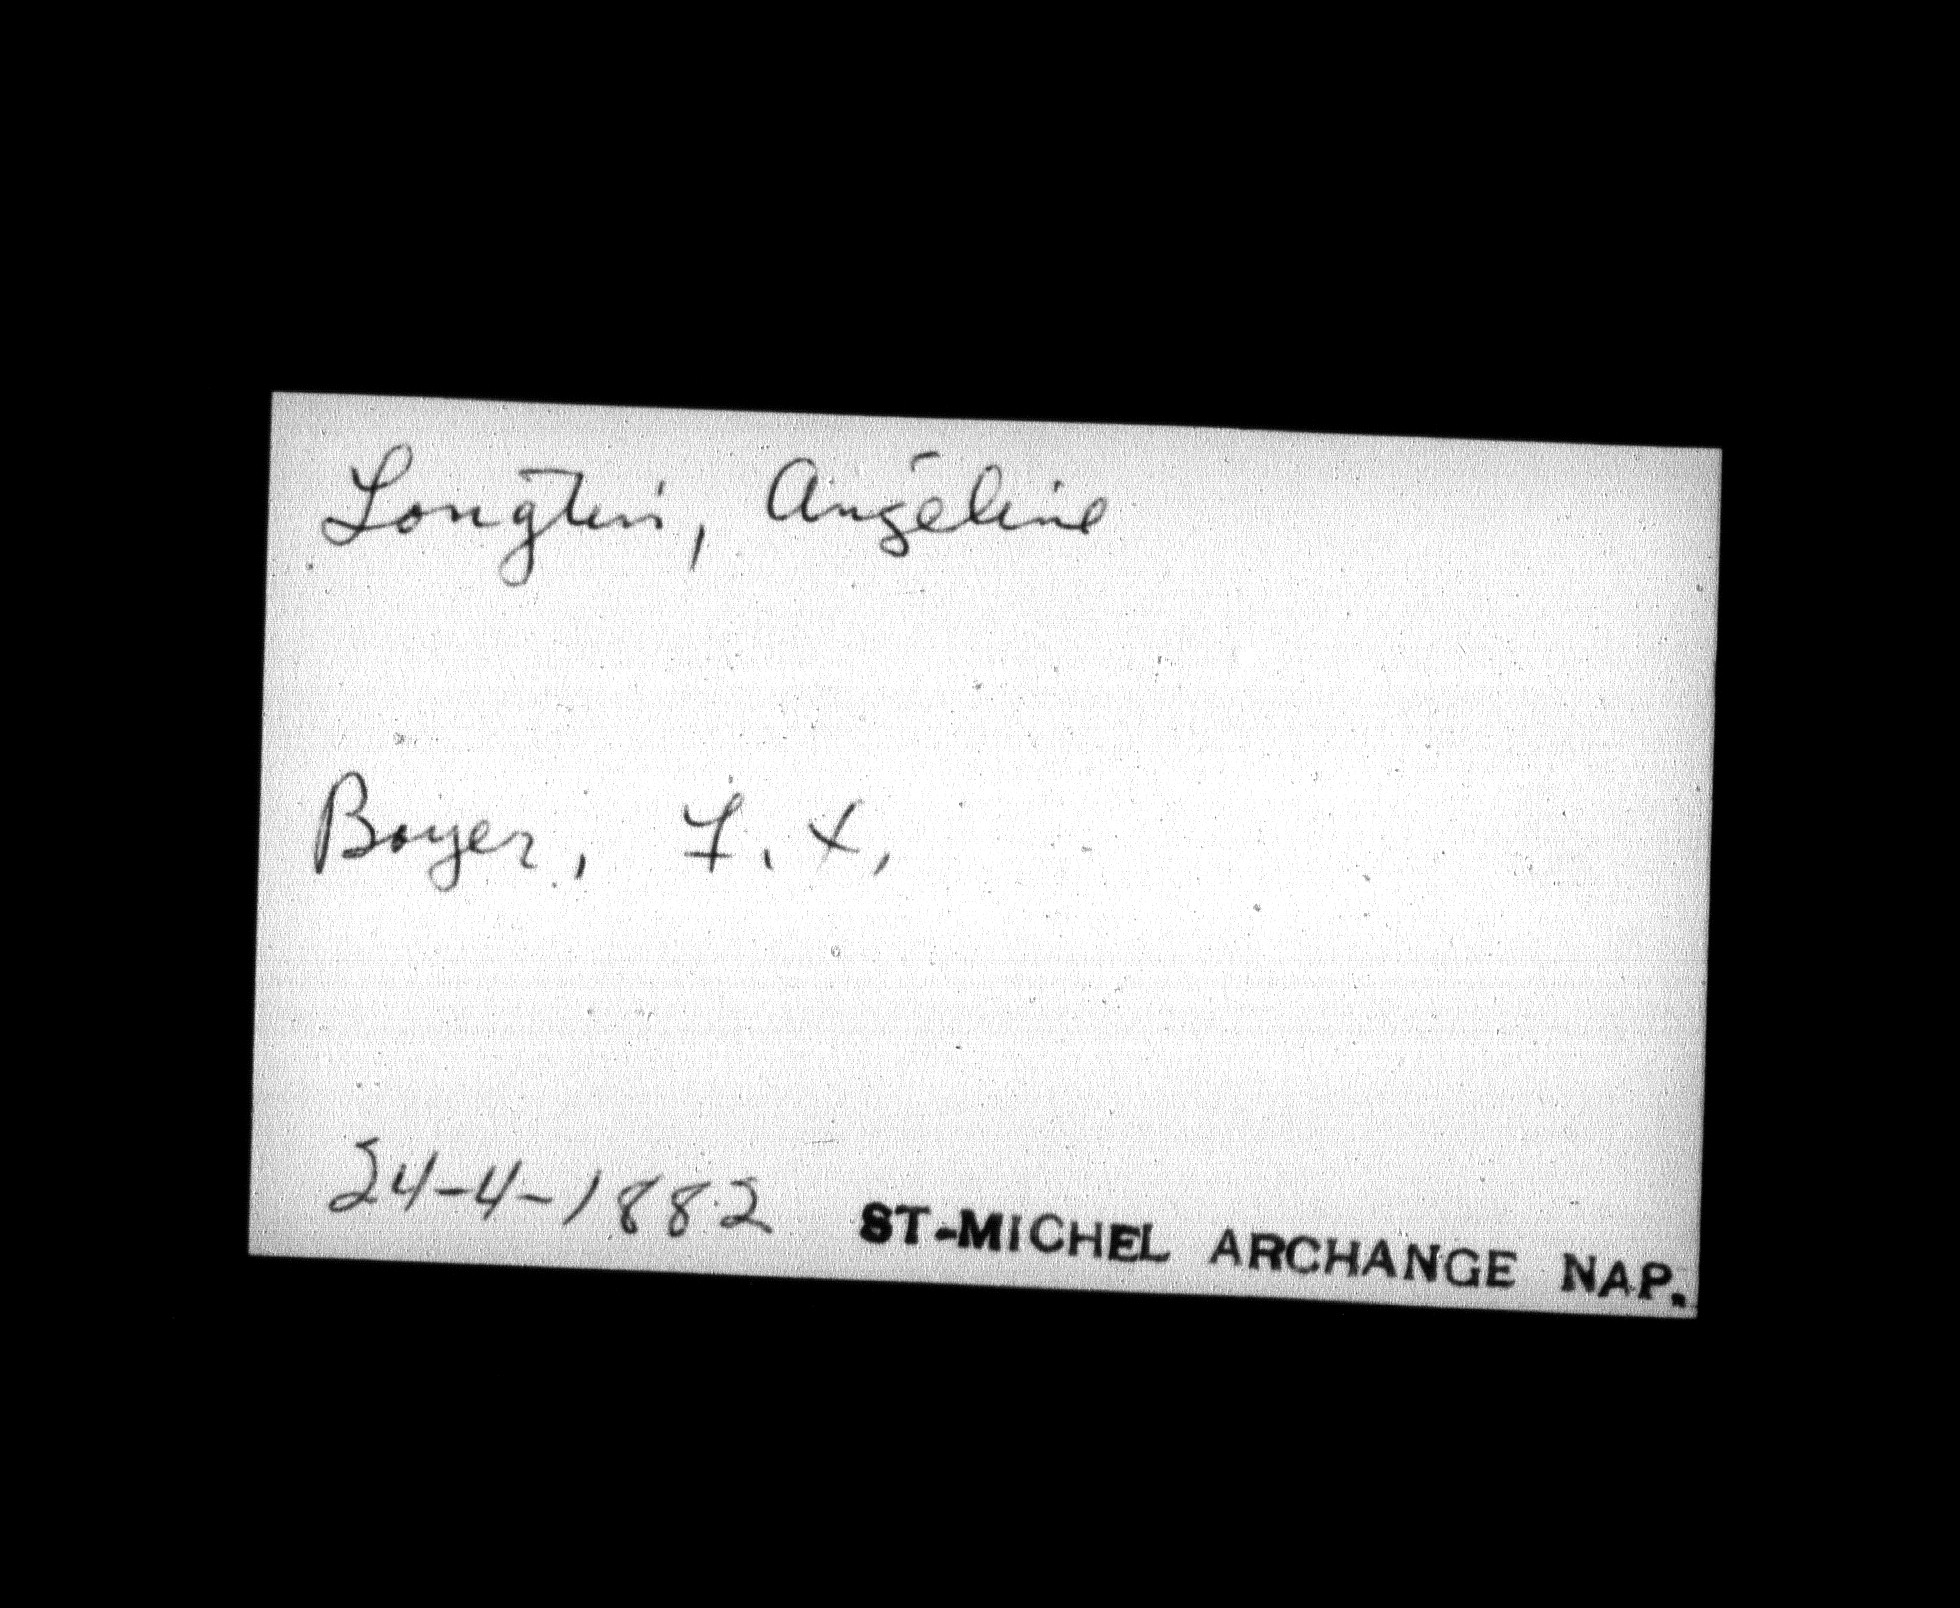 Longtin, Angéline
Boyer, F. X,
24-4-1882 ST-MICHEL ARCHANGE NAP.